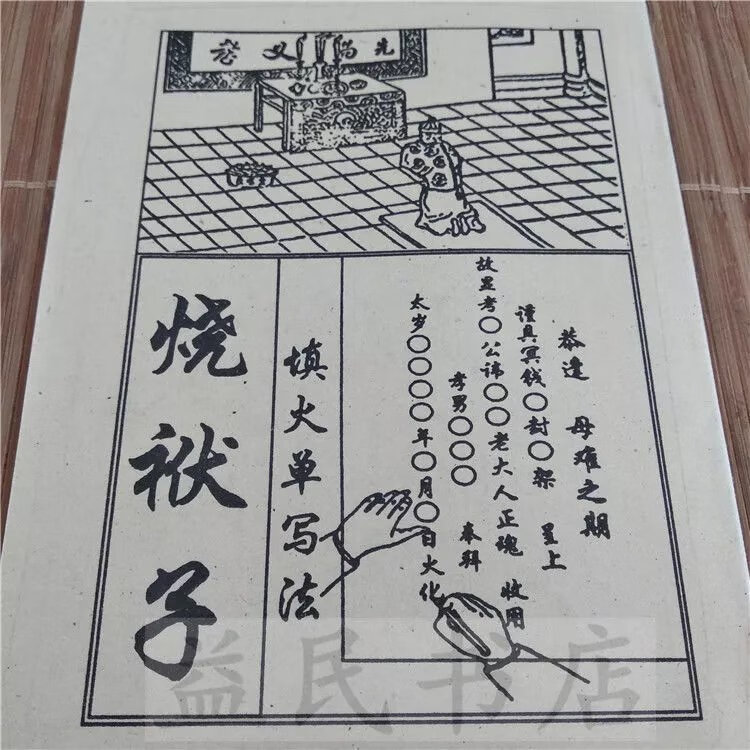 烧袱子
填火单写法
恭逢 母难之期
谨具冥钱〇封〇架 呈上
故显考〇公讳〇〇老大人正魂 收用
孝男〇〇〇 奉拜
太岁〇〇〇〇年〇月〇日火化
益民书店